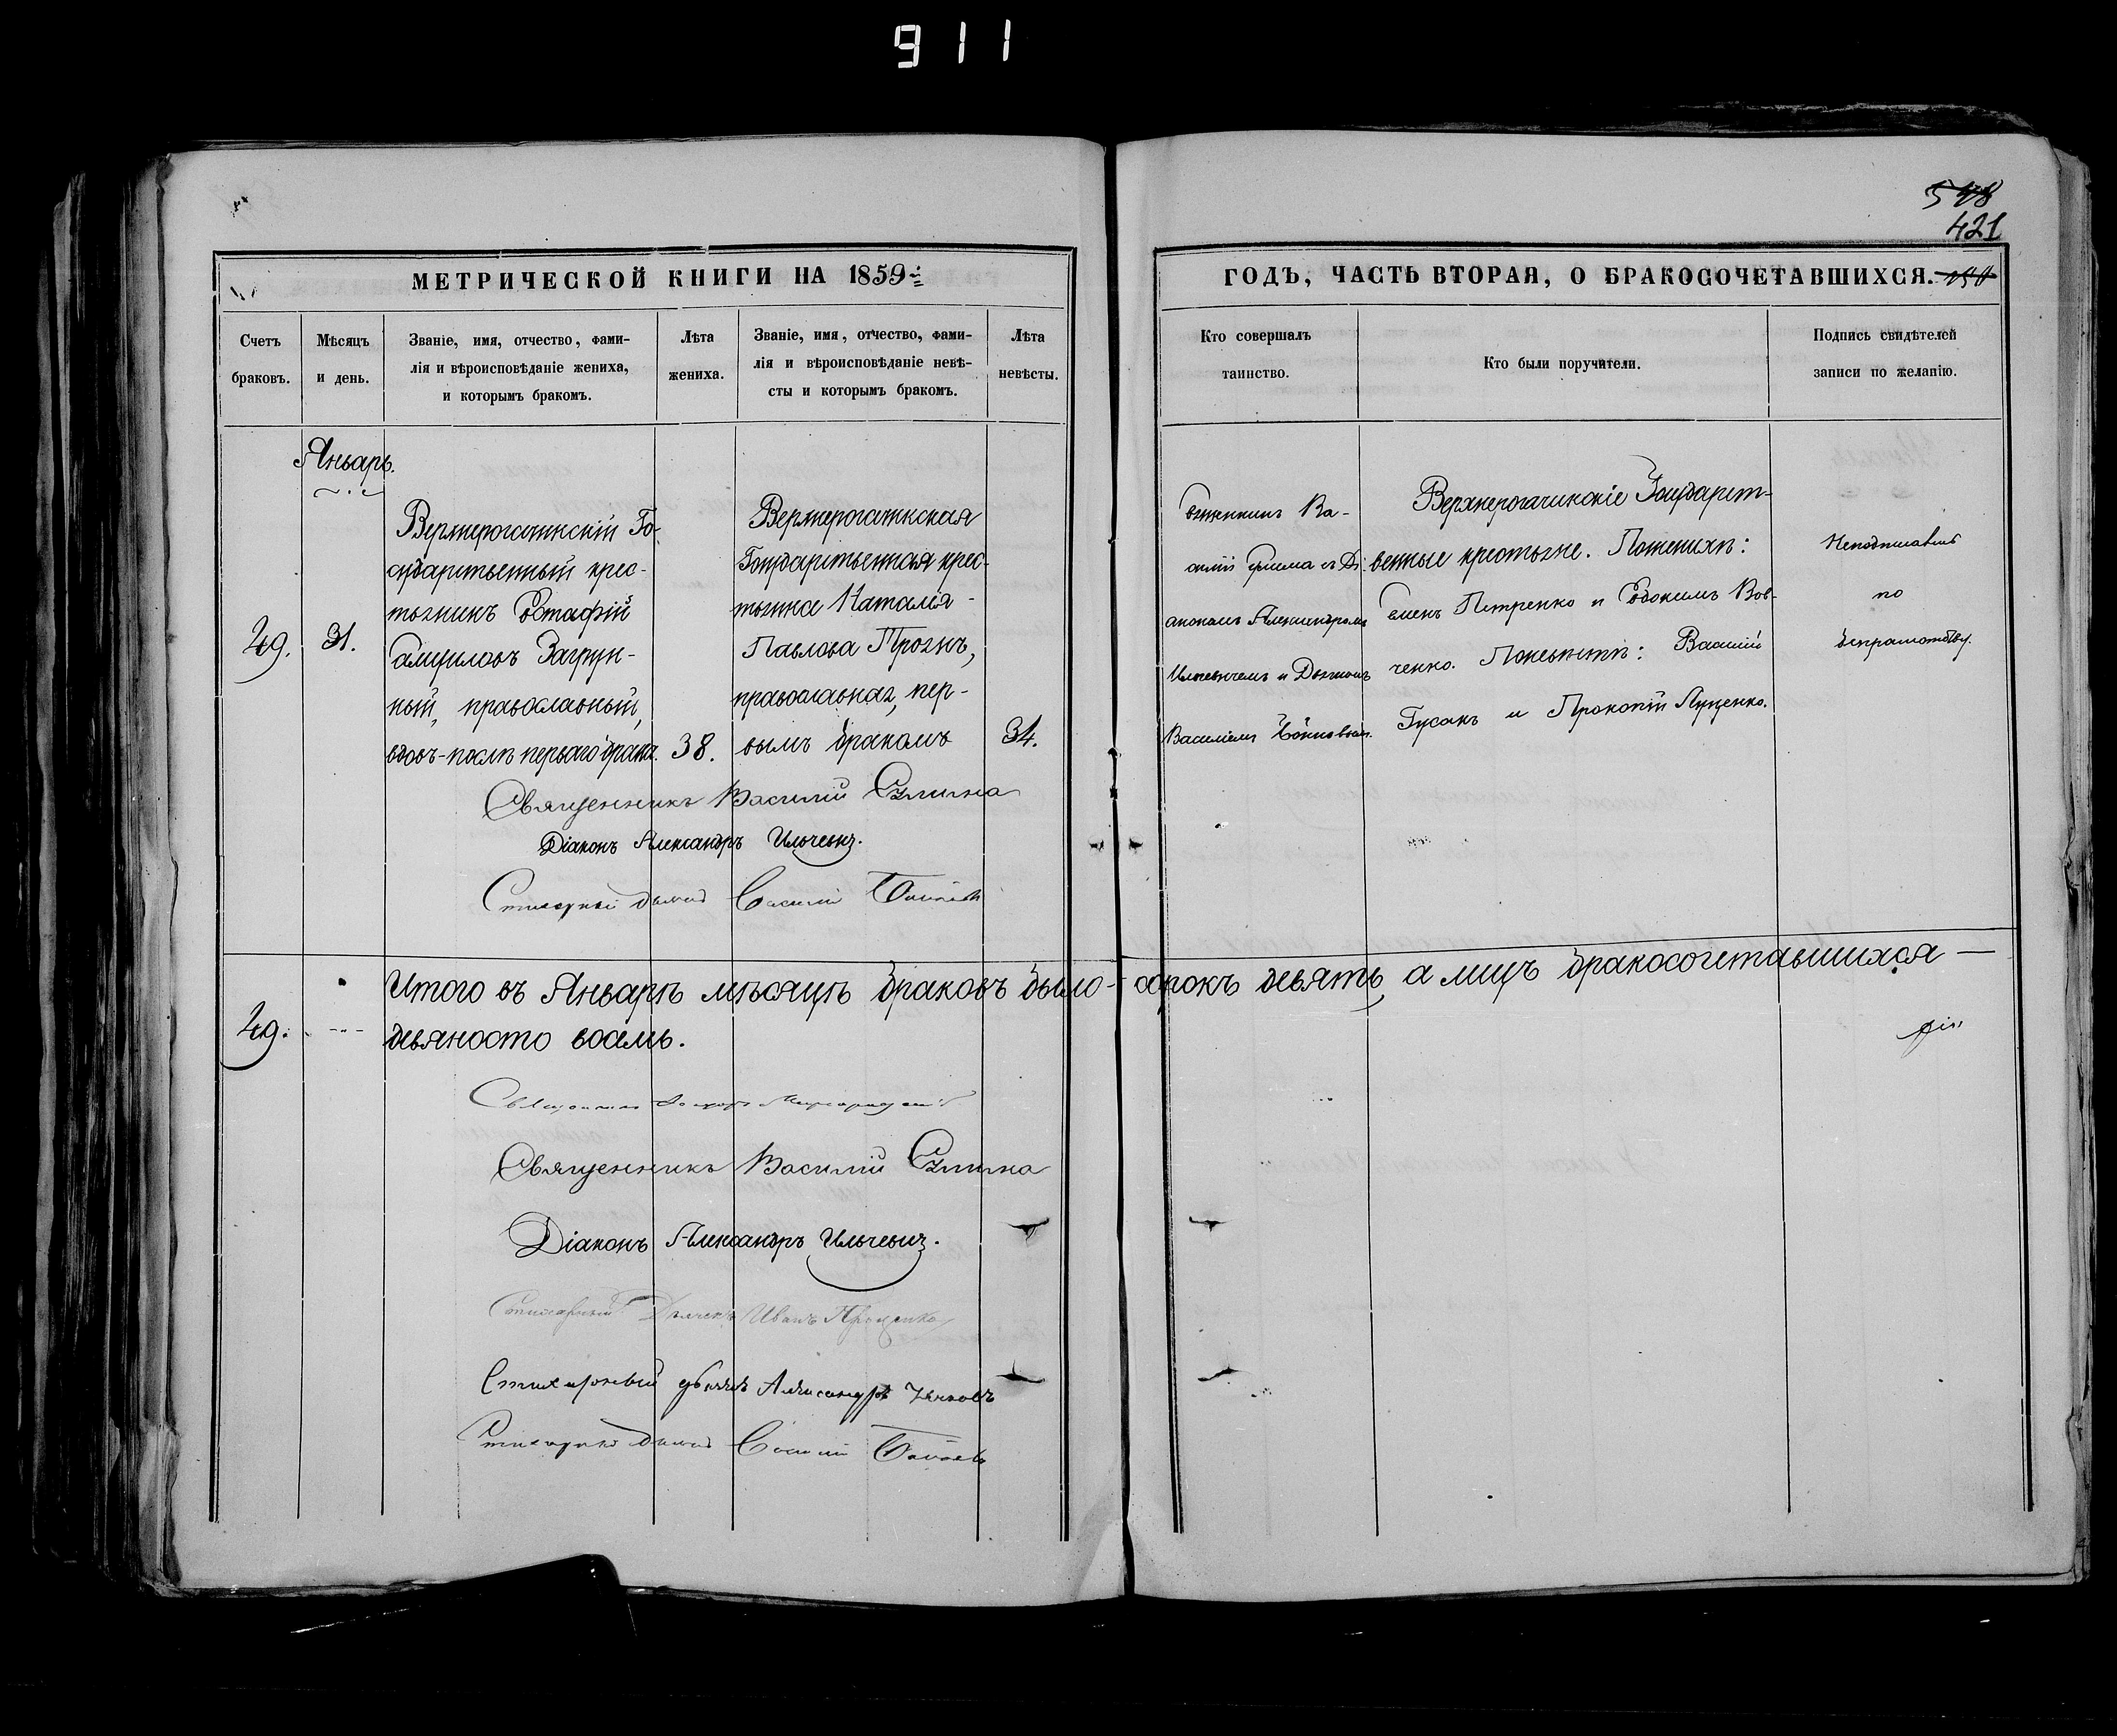 911
548
421
МЕТРИЧЕСКОЙ КНИГИ НА 1859
ГОДЪ, ЧАСТЬ ВТОРАЯ, О БРАКОСОЧЕТАВШИХСЯ.
Счетъ
браковъ.
Мѣсяцъ
и день.
Званіе, имя, отчество, фами-
лія и вѣроисповѣданіе жениха,
и которымъ бракомъ.
Лѣта
жениха.
Званіе, имя, отчество, фами-
лія и вѣроисповѣданіе невѣ-
сты и которымъ бракомъ.
Лѣта
невѣсты.
Кто совершалъ
таинство.
Кто были поручители.
Подпись свидѣтелей
записи по желанію.
Январь.
49.
31.
Верхнерогачикскій Го-
сударственный крес-
тьянинъ Евстафій
Самуиловъ Загрун-
ный, православный,
вдовъ-послѣ перваго брака.
38.
Верхнерогачикская
Государственная крес-
тьянка Наталія
Павлова Трогнъ,
православная, пер-
вымъ бракомъ
34.
Ва-
силій съ Ді-
акономъ Александромъ
Ильчевичемъ и Дьячкомъ
Василіемъ
Верхнерогачикскіе Государст-
венные крестьяне. По женихѣ:
Семенъ Петренко и Евдокимъ Вов-
ченко. По невѣстѣ: Василій
Гусакъ и Прокопій Луценко.
Неподписались
по
безграмотству.
Священникъ Василій
Діаконъ Александръ Ильчевич.
Стихарный дьячекъ Василій
49.
Итого въ Январѣ мѣсяцѣ браковъ было - сорокъ девять, а лицъ бракосочетавшихся —
девяносто восемь.
Священникъ
Священникъ Василій
Діаконъ Александръ Ильчевич.
Стихарный Дьячекъ Иванъ Проценко
Стихарный дьячекъ Александръ
Стихарный дьячекъ Василій